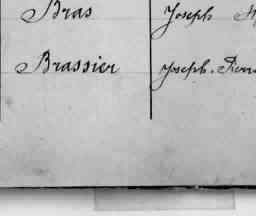 Bras Joseph
Brassier Joseph. Pierre